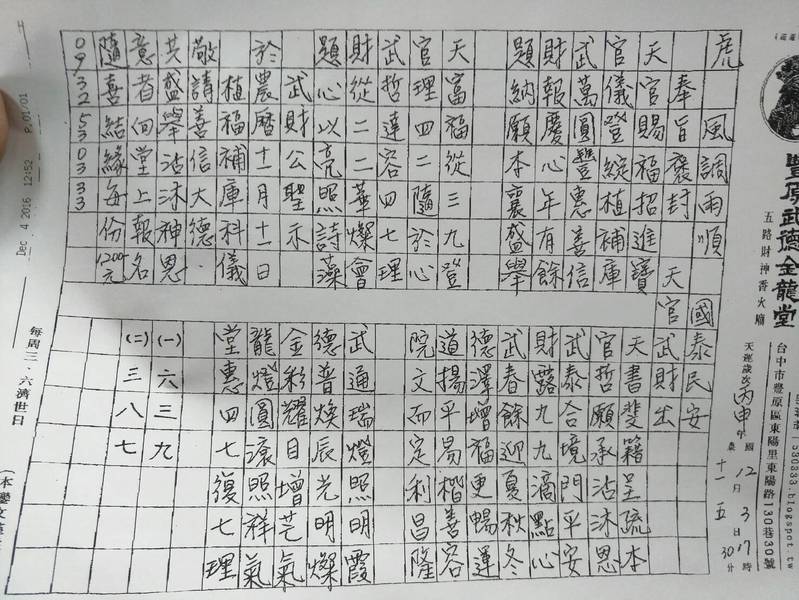 豐原武德金龍堂
五路財神香火廟
台中市豐原區東陽里東陽路130巷30號
天運歲次丙申年
國 12月 3日 17時
農 十一 五 30分
虎
風調雨順
奉旨褒封
國泰民安
天官武財出
天官賜福招進寶
官儀登綻植補庫
武萬圓豐惠善信
財報慶心年有餘
題納願本襄盛舉
天富福從三九登
官理四二隨於心
武哲達容四七理
財從二二華燦會
題心以亮照詩藻
武財公聖示
於農曆十一月十一日
植福補庫科儀
敬請善信大德．
共盛舉沾沐神恩
意者回堂上報名
隨喜結緣每份1200元
天書斐籍呈疏本
官哲願承沾沐恩
武泰合境門平安
財露九九滴點心
武春餘迎夏秋冬
德澤增福更暢運
道揚平易楷善容
院文而定利昌隆
武通瑞燈照明霞
德普煥辰光明燦
金彩耀目增芒氣
龍燈圓滾照祥氣
堂惠四七復七理
(一)六三九
(二)三八七
每周三．六濟世日
Dec 4 2016 12:52 P.01/01
09 32 53 03 33